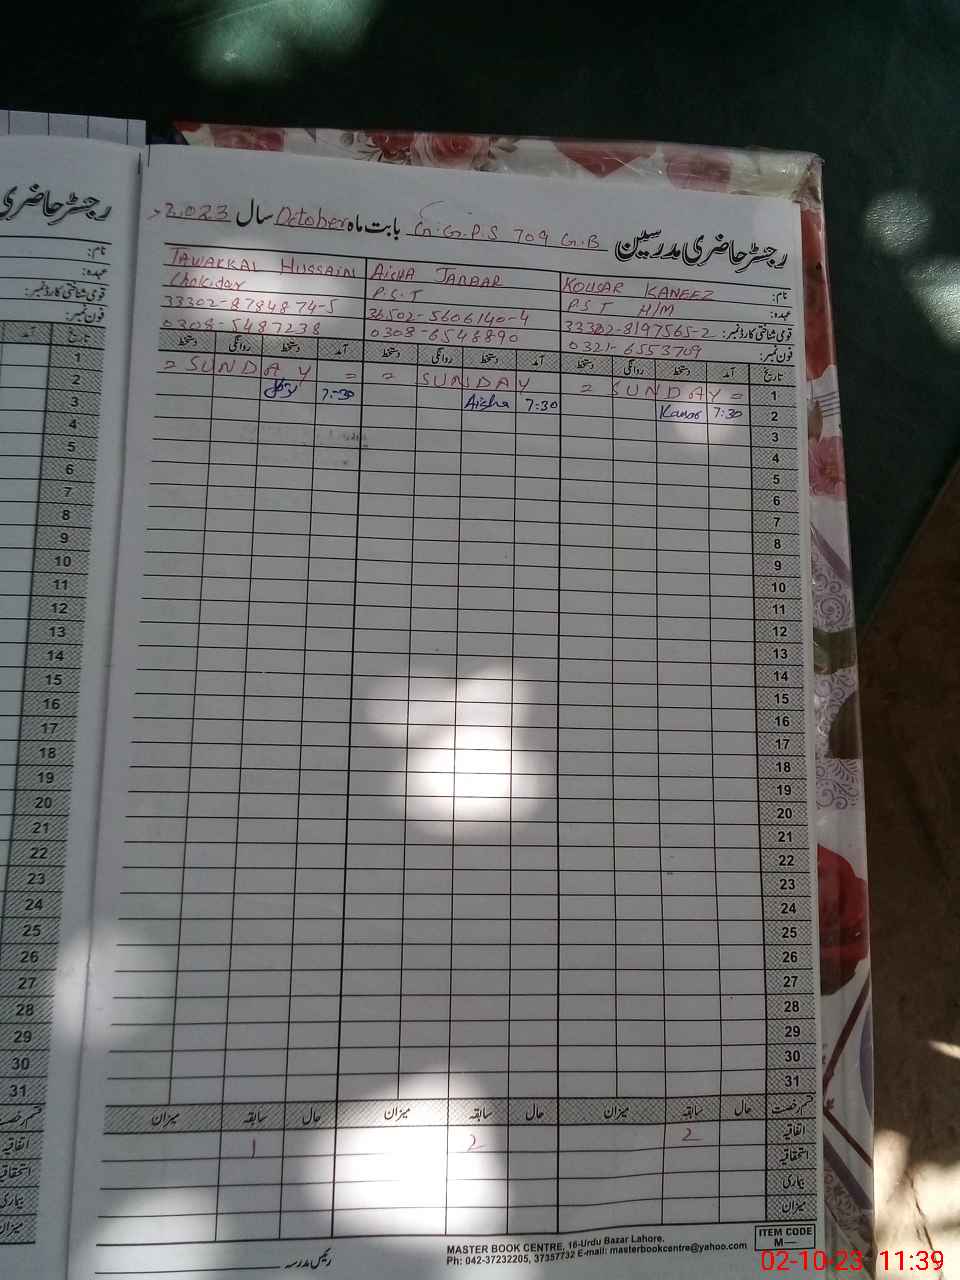 رجسٹر حاضری مدرسین G.G.P.S 709 G.B بابت ماہ October سال 2023
نام: KOUSAR KANEEZ
عہدہ: PST H/M
قومی شناختی کارڈ نمبر: 33302-8197565-2
فون نمبر: 0321-6553709
AISHA JABBAR
P.S.T
36502-5606140-4
0308-6548890
TAWAKKAL HUSSAIN
Chokidar
33302-8784874-5
0308-5487238
تاریخ آمد دستخط روانگی دستخط آمد دستخط روانگی دستخط آمد دستخط روانگی دستخط
1 = SUNDAY = = SUNDAY = = SUNDAY =
2 7:30 7:30 Aisha 7:30
3
4
5
6
7
8
9
10
11
12
13
14
15
16
17
18
19
20
21
22
23
24
25
26
27
28
29
30
31
قسم رخصت حال سابقہ میزان حال سابقہ میزان حال سابقہ میزان
اتفاقیہ 2 2 1
استحقاقیہ
بیماری
میزان
رئیس مدرسہ
MASTER BOOK CENTRE, 16-Urdu Bazar Lahore.
Ph: 042-37232205, 37357732 E-mail: masterbookcentre@yahoo.com
ITEM CODE
M—
رجسٹر حاضری
نام:
عہدہ:
قومی شناختی کارڈ نمبر:
فون نمبر:
تاریخ آمد
1
2
3
4
5
6
7
8
9
10
11
12
13
14
15
16
17
18
19
20
21
22
23
24
25
26
27
28
29
30
31
قسم رخصت
اتفاقیہ
استحقاقیہ
بیماری
میزان
02-10-23 11:39